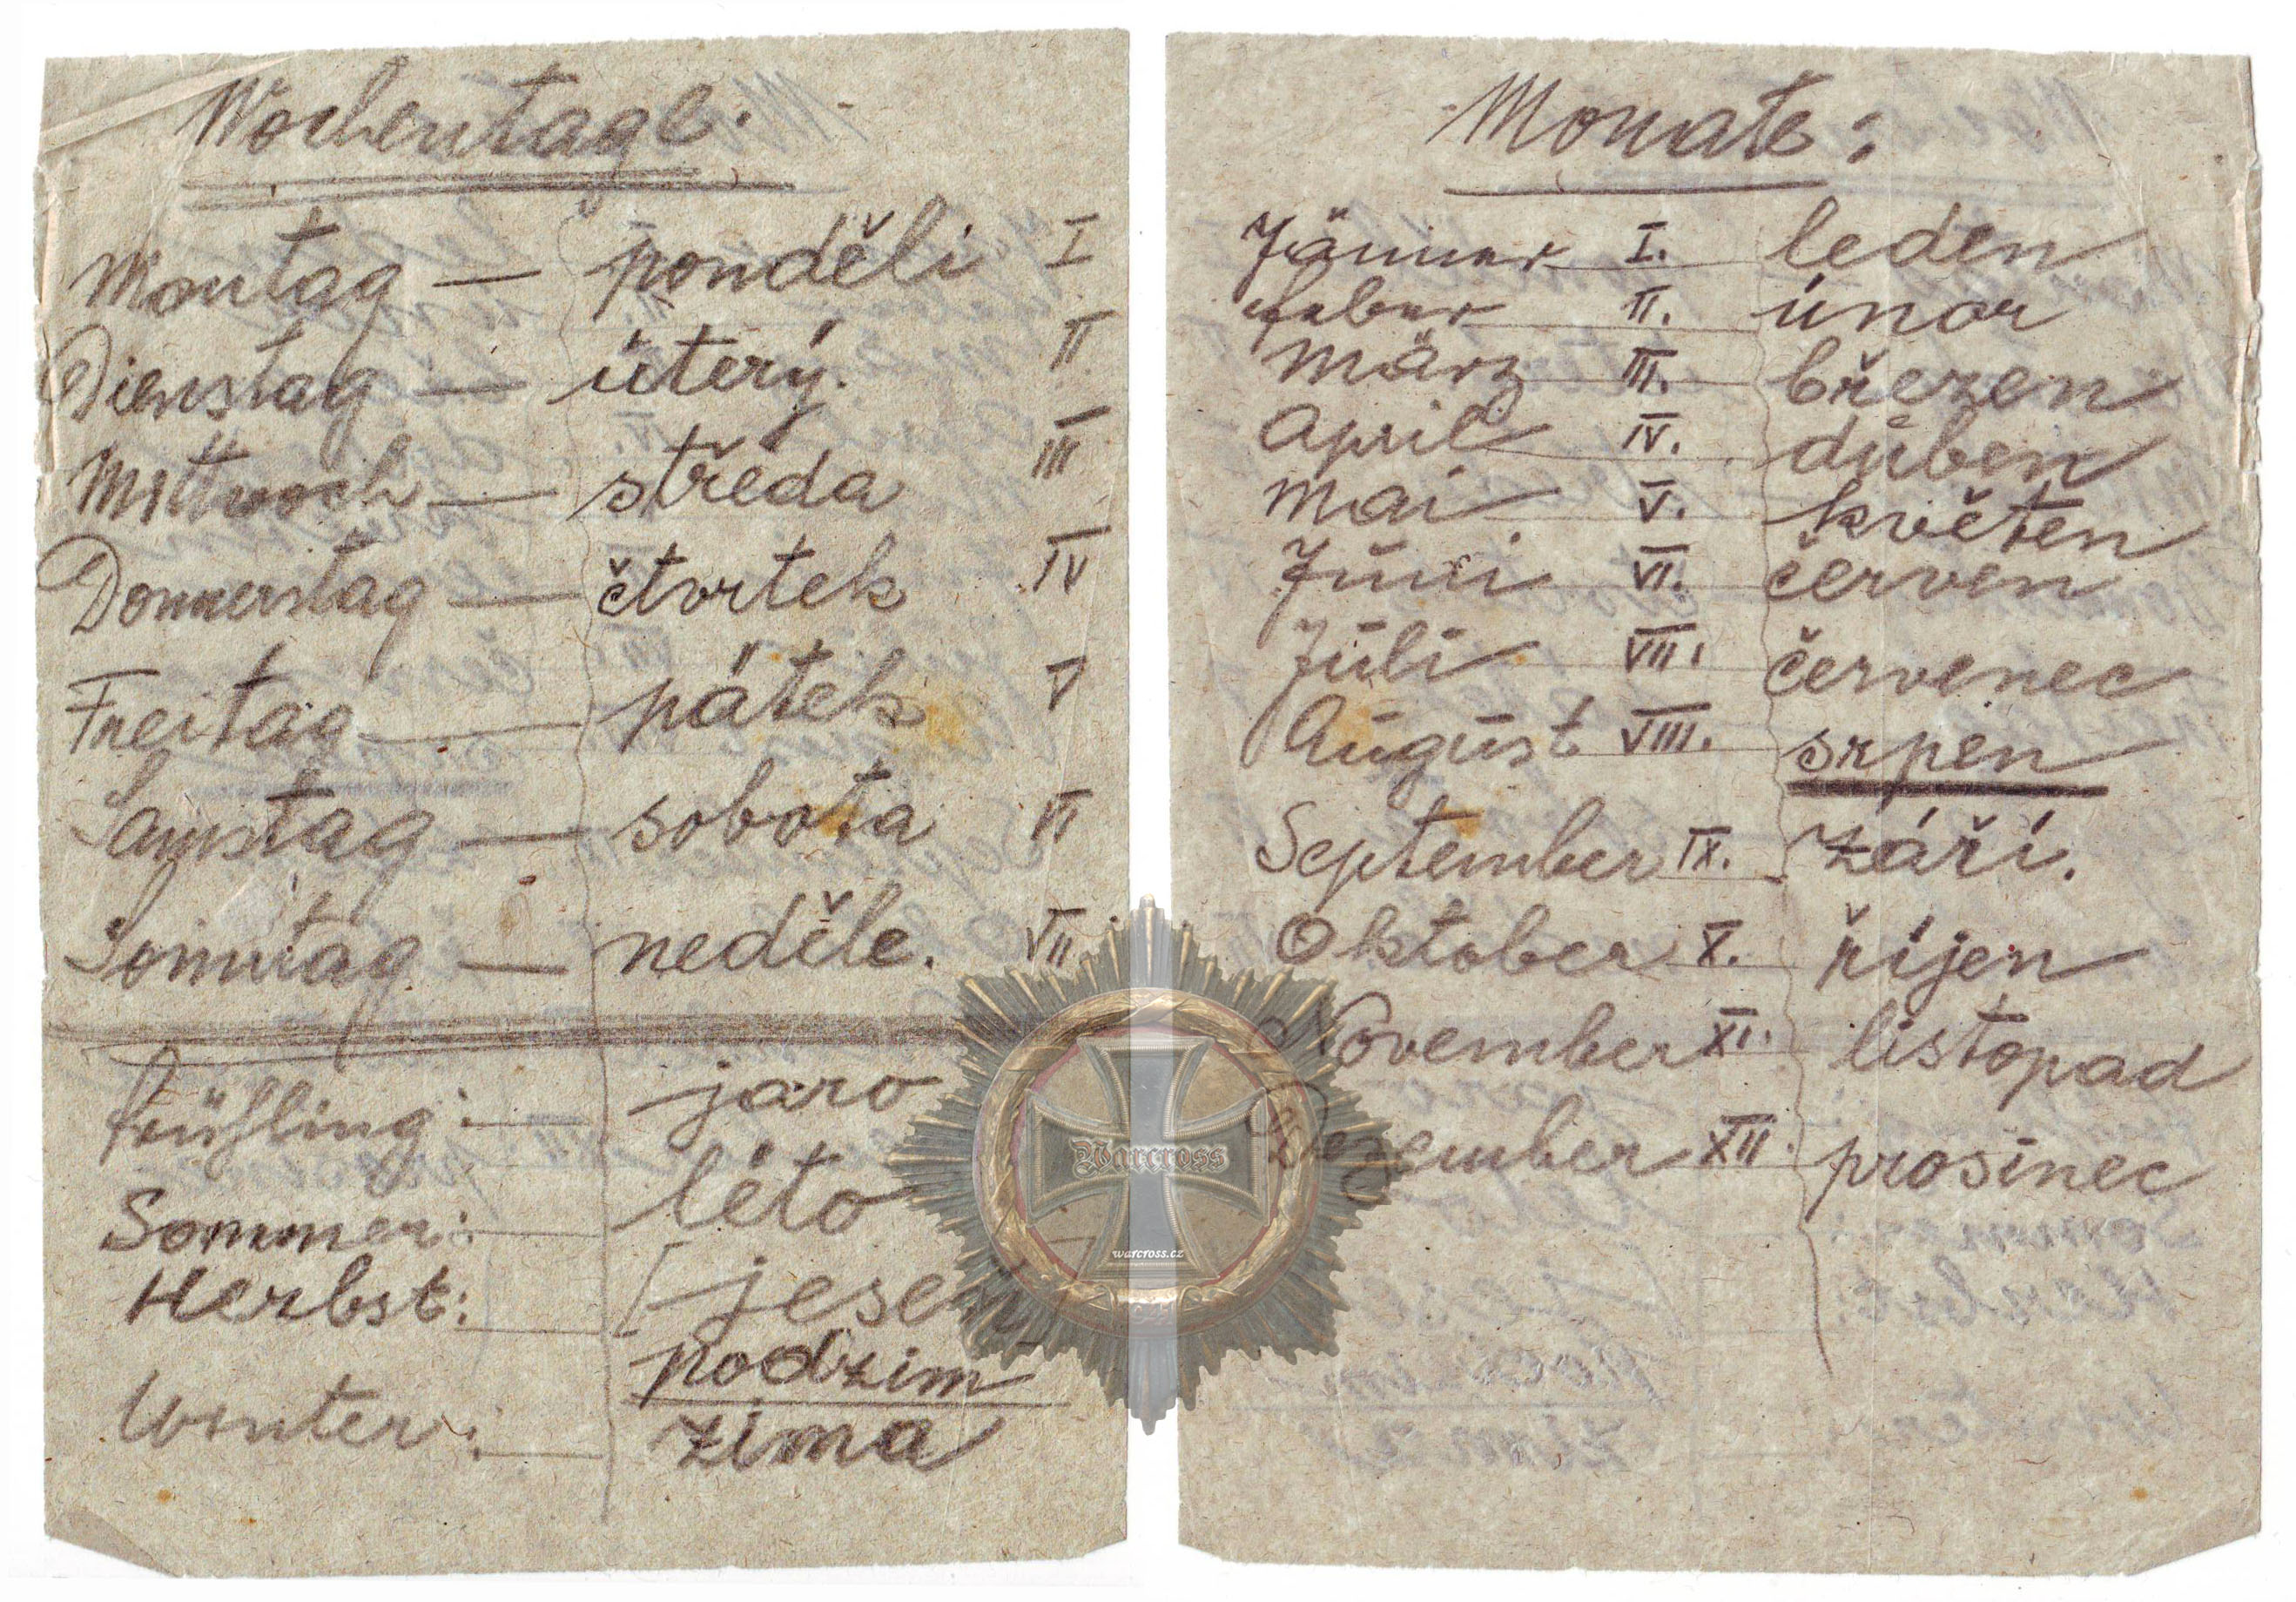 Wochentage.
Montag — ponděli I
Dienstag — úterý. II
Mittwoch — středa III
Donnerstag — čtvrtek IV
Freitag — pátek V
Samstag — sobota VI
Sonntag — neděle. VII
Frühling: — jaro
Sommer: léto
Herbst: [jeseň]
podzim
Winter: zima
Monate:
Jänner I. leden
Feber II. únor
März III. březen
April IV. duben
Mai V. květen
Juni VI. červen
Juli VII. červenec
August VIII. srpen
September IX. září.
Oktober X. říjen
November XI. listopad
Dezember XII. prosinec
Warcross
warcross.cz